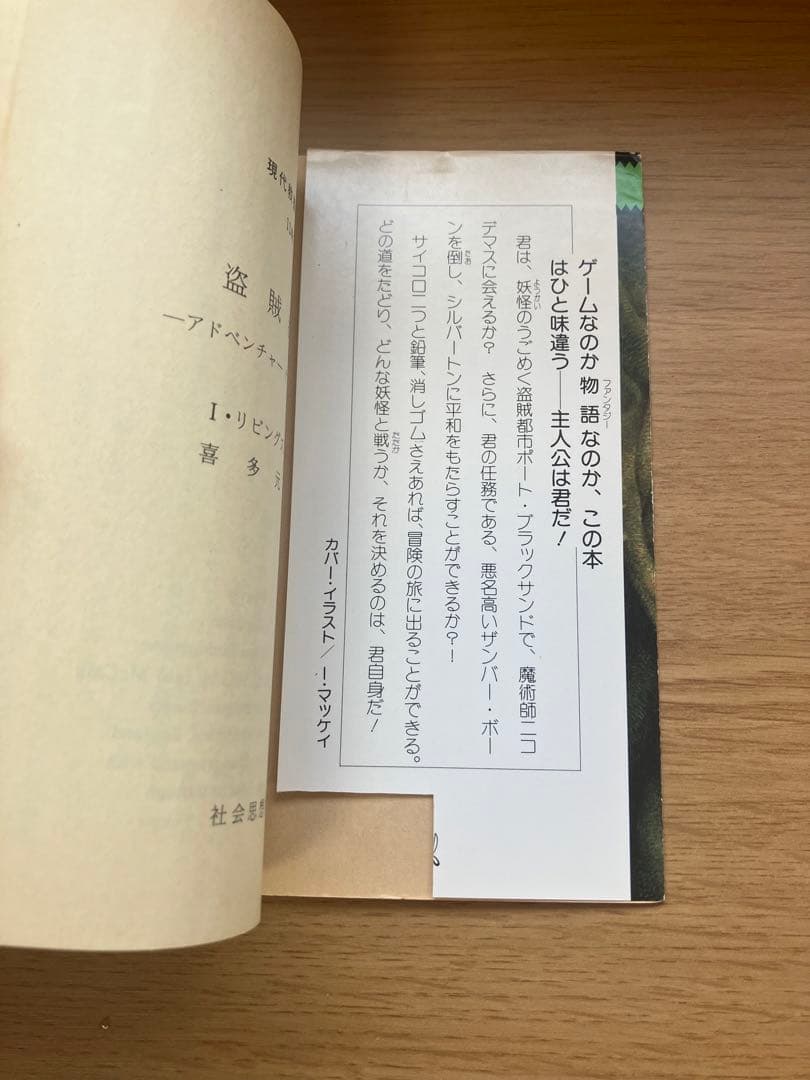 ゲームなのか物語なのか、この本
ファンタジー
はひと味違う――主人公は君だ！
君は、妖怪のうごめく盗賊都市ポート・ブラックサンドで、魔術師ニコ
ようかい
デマスに会えるか？　さらに、君の任務である、悪名高いザンバー・ボー
ンを倒し、シルバートンに平和をもたらすことができるか？！
たお
サイコロ二つと鉛筆、消しゴムさえあれば、冒険の旅に出ることができる。
どの道をたどり、どんな妖怪と戦うか、それを決めるのは、君自身だ！
たたか
カバー・イラスト／I・マッケイ
現代教
盗賊
―アドベンチャー
I・リビング
喜多元
社会思想